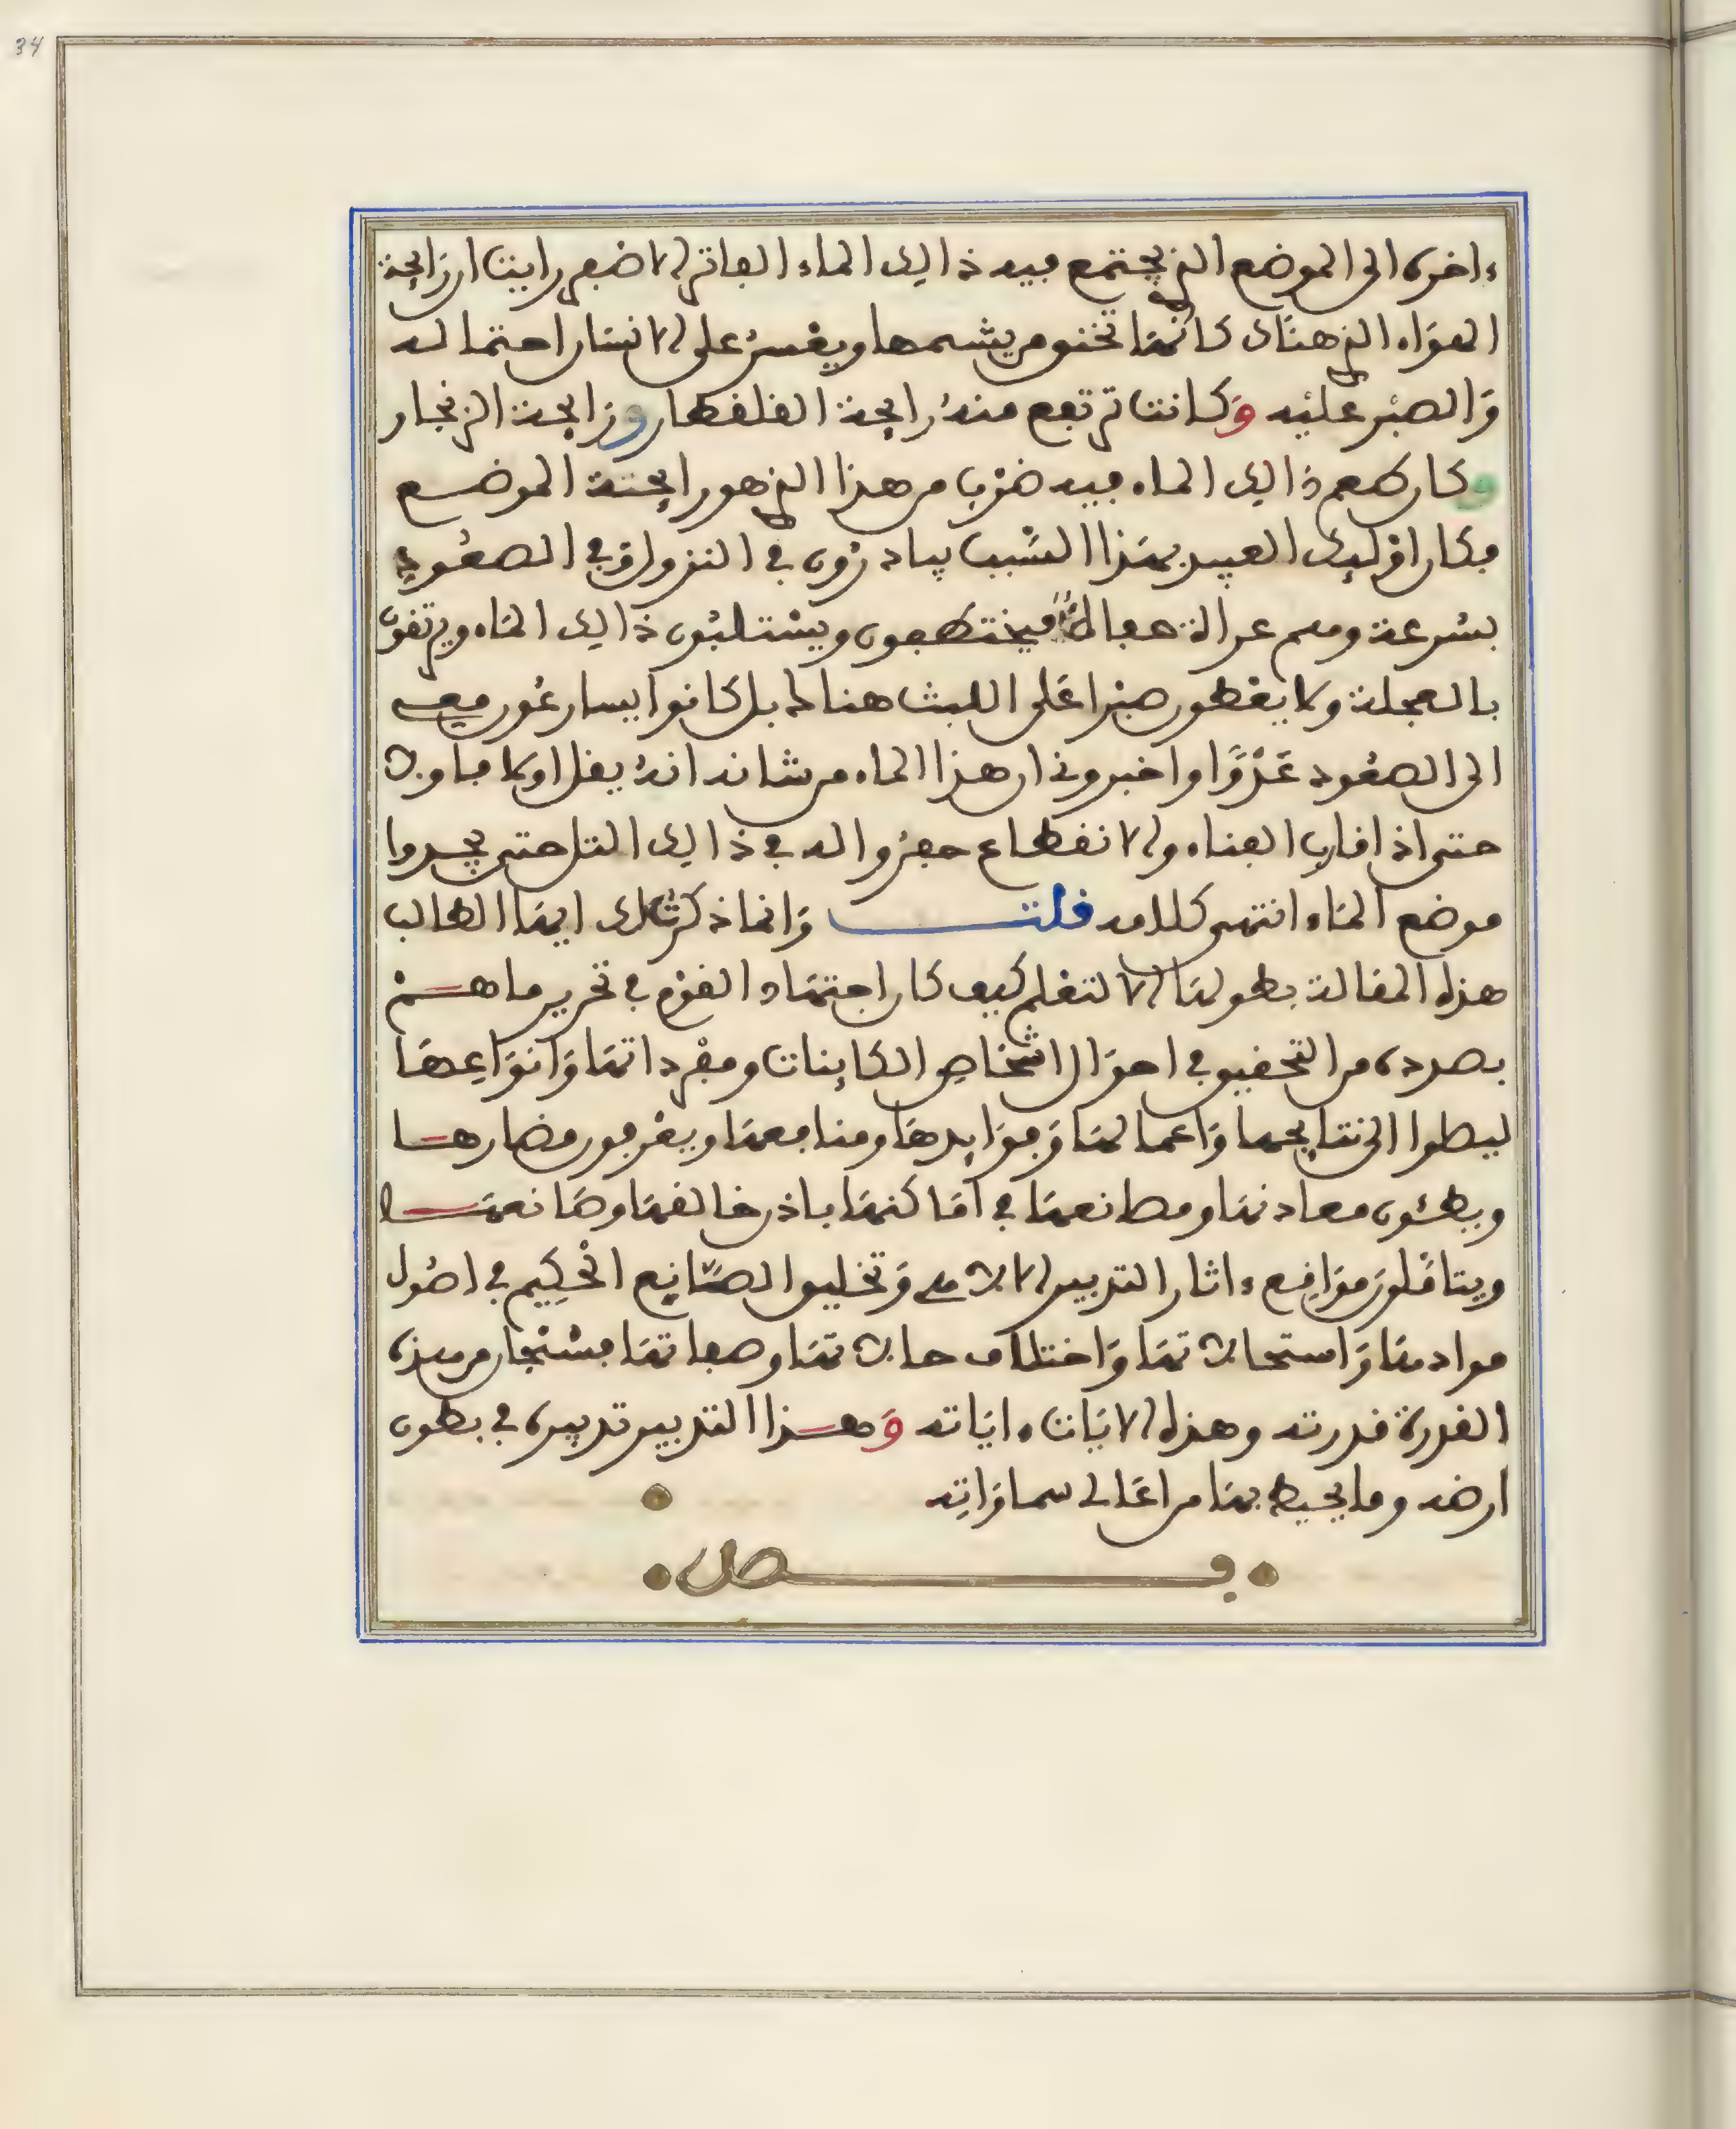 34
ءاخره الى الموضع الذي يجتمع فيه ذالك الماء الفاتر الاخضر رايت ان رايحة
الهواء الذي هناك كانها تخنق من يشمها ويعسر على الانسان احتماله
والصبر عليه وكانت ترتفع منه رايحة القلقطار ورايحة الزنجار
وكان طعم ذالك الماء فيه ضرب من هذا الذي هو رايحة الموضع
فكان اوليك العبيد بهذا السبب يبادرون في النزول وفي الصعود
بسرعة وهم عراة عجالا فيختطفون ويستلبون ذالك الماء ويرتقون
بالعجلة ولا يعطون صبرا على اللبث هناك بل كانوا يسارعون فيه
الى الصعود عدوا واخبروني ان هذا الماء من شانه انه يقل اولا فاولا
حتى اذا قارب الفناء والانقطاع حفروا له في ذالك التل حتى يجدوا
موضع الماء انتهى كلامه قلت وانما ذكرت لك ايها الطالب
هذه المقالة بطولها الا لتعلم كيف كان اجتهاد القوم في تحرير ما هم
بصدده من التحقيق في احوال اشخاص الكاينات ومفرداتها وانواعها
ليصلوا الى نتايجها واعمالها وفوايدها ومنافعها ويعرفون مضارها
ويطئون معادنها ومصانعها في اماكنها باذن خالقها وصانعها
ويتاملون مواقع ءاثار التدبير الالاهي وتخليق الصانع الحكيم في اصول
موادها واستحالاتها واختلاف حالاتها وصفاتها فسبحان من هذه
القدرة قدرته وهذه الايات ءاياته وهذا التدبير تدبيره في بطون
ارضه وما يحيط بها من اعالي سماواته
فصل